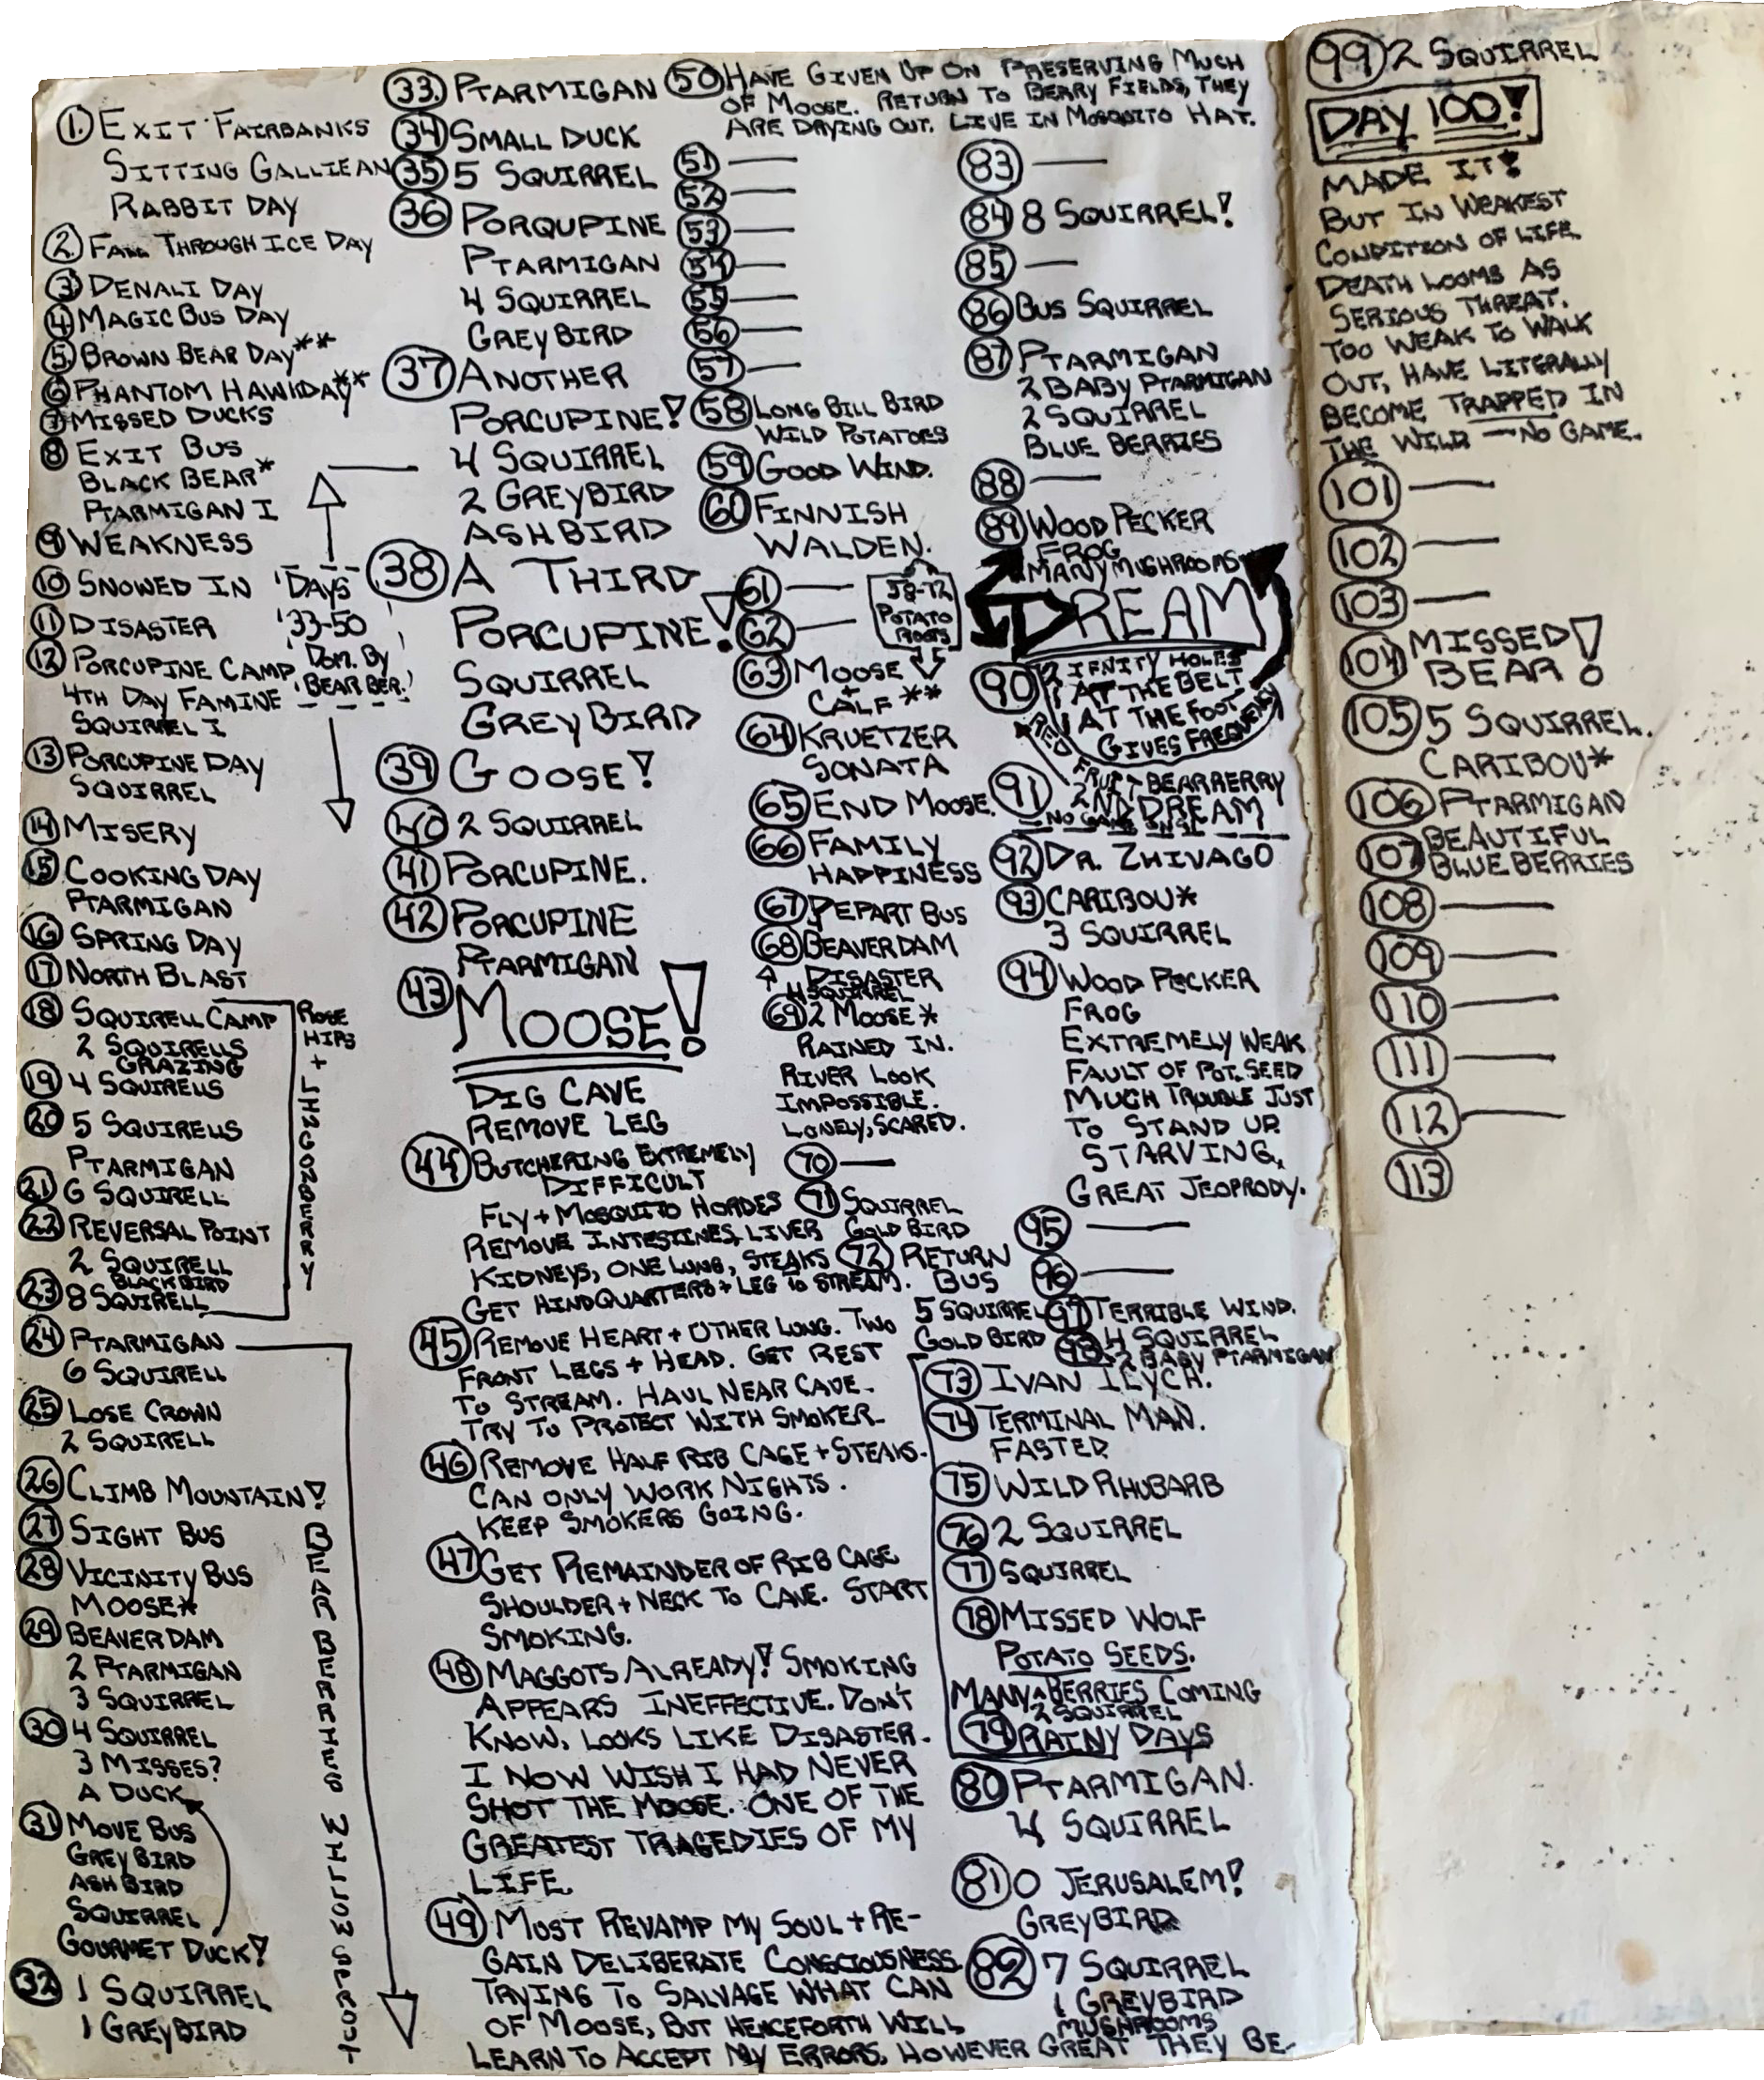 ① EXIT FAIRBANKS
SITTING GALLIEAN
RABBIT DAY
② FALL THROUGH ICE DAY
③ DENALI DAY
④ MAGIC BUS DAY
⑤ BROWN BEAR DAY**
⑥ PHANTOM HAWKDAY**
⑦ MISSED DUCKS
⑧ EXIT BUS
BLACK BEAR*
PTARMIGAN I
⑨ WEAKNESS
⑩ SNOWED IN
⑪ DISASTER
⑫ PORCUPINE CAMP
4TH DAY FAMINE
SQUIRREL I
⑬ PORCUPINE DAY
SQUIRREL
⑭ MISERY
⑮ COOKING DAY
PTARMIGAN
⑯ SPRING DAY
⑰ NORTH BLAST
⑱ SQUIRELL CAMP
2 SQUIRELLS
GRAZING
⑲ 4 SQUIRELLS
⑳ 5 SQUIRELLS
PTARMIGAN
㉑ 6 SQUIRELL
㉒ REVERSAL POINT
2 SQUIRELL
BLACK BIRD
㉓ 8 SQUIRELL
ROSE
HIPS
+
LINGONBERRY
㉔ PTARMIGAN
6 SQUIRELL
㉕ LOSE CROWN
2 SQUIRELL
㉖ CLIMB MOUNTAIN!
㉗ SIGHT BUS
㉘ VICINITY BUS
MOOSE*
㉙ BEAVER DAM
2 PTARMIGAN
3 SQUIRREL
㉚ 4 SQUIRREL
3 MISSES?
A DUCK
㉛ MOVE BUS
GREY BIRD
ASH BIRD
SQUIRREL
GOURMET DUCK!
㉜ 1 SQUIRREL
1 GREYBIRD
BEAR BERRIES WILLOW SPROUT
DAYS
33-50
DOM. BY
BEAR BER.
㉝ PTARMIGAN
㉞ SMALL DUCK
㉟ 5 SQUIRREL
㊱ PORQUPINE
PTARMIGAN
4 SQUIRREL
GREY BIRD
㊲ ANOTHER
PORCUPINE!
4 SQUIRREL
2 GREYBIRD
ASHBIRD
㊳ A THIRD
PORCUPINE!
SQUIRREL
GREY BIRD
㊴ GOOSE!
㊵ 2 SQUIRREL
㊶ PORCUPINE.
㊷ PORCUPINE
PTARMIGAN
㊸ MOOSE!
DIG CAVE
REMOVE LEG
㊹ BUTCHERING EXTREMELY
DIFFICULT
FLY + MOSQUITO HORDES
REMOVE INTESTINES, LIVER
KIDNEYS, ONE LUNG, STEAKS
GET HINDQUARTERS + LEG TO STREAM.
㊺ REMOVE HEART + OTHER LUNG. TWO
FRONT LEGS + HEAD. GET REST
TO STREAM. HAUL NEAR CAVE.
TRY TO PROTECT WITH SMOKER.
㊻ REMOVE HALF RIB CAGE + STEAKS.
CAN ONLY WORK NIGHTS.
KEEP SMOKERS GOING.
㊼ GET REMAINDER OF RIB CAGE
SHOULDER + NECK TO CAVE. START
SMOKING.
㊽ MAGGOTS ALREADY! SMOKING
APPEARS INEFFECTIVE. DON'T
KNOW, LOOKS LIKE DISASTER.
I NOW WISH I HAD NEVER
SHOT THE MOOSE. ONE OF THE
GREATEST TRAGEDIES OF MY
LIFE.
㊾ MUST REVAMP MY SOUL + RE-
GAIN DELIBERATE CONSCIOUSNESS.
TRYING TO SALVAGE WHAT CAN
OF MOOSE, BUT HENCEFORTH WILL
LEARN TO ACCEPT MY ERRORS, HOWEVER GREAT THEY BE.
㊿ HAVE GIVEN UP ON PRESERVING MUCH
OF MOOSE. RETURN TO BERRY FIELDS, THEY
ARE DRYING OUT. LIVE IN MOSQUITO HAT.
51 —
52 —
53 —
54 —
55 —
56 —
57 —
58 LONG BILL BIRD
WILD POTATOES
59 GOOD WIND.
60 FINNISH
WALDEN.
61 —
62 —
58-72
POTATO
ROOTS
63 MOOSE
+
CALF **
64 KRUETZER
SONATA
65 END MOOSE.
66 FAMILY
HAPPINESS
67 DEPART BUS
68 BEAVER DAM
DISASTER
4 SQUIRREL
69 2 MOOSE*
RAINED IN.
RIVER LOOK
IMPOSSIBLE.
LONELY, SCARED.
70 —
71 SQUIRREL
GOLD BIRD
72 RETURN
BUS
5 SQUIRREL
GOLD BIRD
73 IVAN ILYCH.
74 TERMINAL MAN.
FASTED
75 WILD RHUBARB
76 2 SQUIRREL
77 SQUIRREL
78 MISSED WOLF
POTATO SEEDS.
MANY BERRIES COMING
2 SQUIRREL
79 RAINY DAYS
80 PTARMIGAN.
4 SQUIRREL
81 O JERUSALEM!
GREYBIRD
82 7 SQUIRREL
1 GREYBIRD
MUSHROOMS
83 —
84 8 SQUIRREL!
85 —
86 BUS SQUIRREL
87 PTARMIGAN
2 BABY PTARMIGAN
2 SQUIRREL
BLUE BERRIES
88 —
89 WOOD PECKER
FROG
MANY MUSHROOMS
DREAM
90 2 IFNITY HOLES
1 AT THE BELT
1 AT THE FOOT
GIVES FREQUENCY
91 FRUIT BEARBERRY
2ND DREAM
NO GAME
92 DR. ZHIVAGO
93 CARIBOU*
3 SQUIRREL
94 WOOD PECKER
FROG
EXTREMELY WEAK
FAULT OF POT. SEED
MUCH TROUBLE JUST
TO STAND UP.
STARVING.
GREAT JEOPRODY.
95 —
96 —
97 TERRIBLE WIND.
98 4 SQUIRREL
2 BABY PTARMIGAN
99 2 SQUIRREL
DAY 100!
MADE IT!
BUT IN WEAKEST
CONDITION OF LIFE.
DEATH LOOMS AS
SERIOUS THREAT.
TOO WEAK TO WALK
OUT, HAVE LITERALLY
BECOME TRAPPED IN
THE WILD — NO GAME.
101 —
102 —
103 —
104 MISSED
BEAR!
105 5 SQUIRREL.
CARIBOU*
106 PTARMIGAN
107 BEAUTIFUL
BLUE BERRIES
108 —
109 —
110 —
111 —
112 —
113